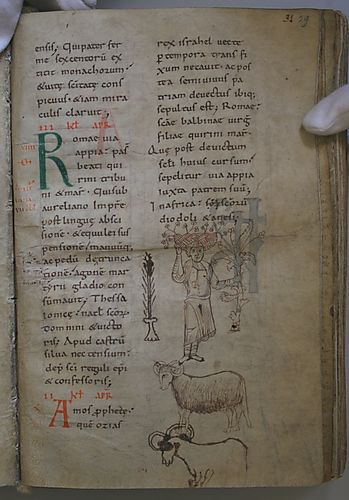 31 29
ensis; Qui pater fer
me sexcentorũ ex
titit monachorum
& uitę sc̃itatẽ cons
picuus. & iam mira
culis claruit;
III KL APR
Romae uia
appia. pas̃
beati qui
rini tribu
ni & mar̃. Qui sub
aureliano Imp̃re
post linguę absci
sione. & equulei sus
pensione. manuũq;
ac pedũ detrunca
tione. agone mar
tyrii gladio con
sũmauit, Thessa
lonicę. nat̃l sc̃or̃
domnini & uicto
ris; Apud castrũ
silua nectensium.
dep̃ sc̃i reguli ep̃i
& confessoris;
II KL APR
Amos prophetę.
quẽ ozias
rex israhel uecte
p̱ tempora transfi
xum necauit. ac pos
tea semiuiuus pa
triam deuectus ibiq;
sepultus est; Romae.
sc̃ae balbinae uirg̃
filiae quirini mar̃.
Quę post deuictum
sc̃li huius cursum
sepelitur uia appia
iuxta patrem suũ;
In africa. sc̃orũ
diodoli & anesi;